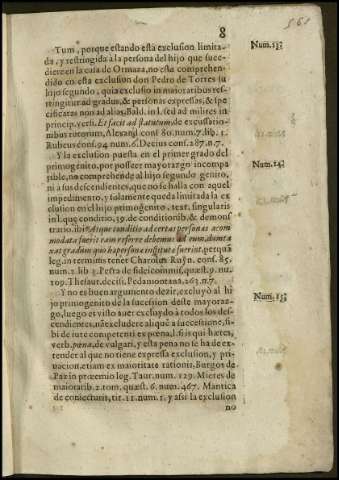 8
561
Tum, porque estando esta exclusion limita-
da, y restringida à la persona del hijo que suce-
diere en la casa de Ormaza, no està comprehen-
dido en esta exclusion don Pedro de Torres su
hijo segundo, quia exclusio in maioratibus res-
tringitur ad gradus, & personas expressas, & spe-
cificatas non ad alias. Bald. in l. sed ad milites in
princip. vers. Et facit ad statutum, de excusatio-
nibus tutorum, Alexand. cons. 80. num. 7. lib. 1.
Rubeus cons. 94. num. 6. Decius cons. 287. n. 7.
Num. 13.
Y la exclusion puesta en el primer grado del
primogenito, por posseer mayorazgo incompa-
tible, no comprehende al hijo segundo genito,
ni a sus descendientes, que no se halla con aquel
impedimento, y solamente queda limitada la ex
clusion en el hijo primogenito. text. singularis
in l. qui conditio, 39. de conditionib. & demons
tratio. ibi: Atque conditio ad certas personas acom
modata fuerit eam referre debemus ad eum, dumta
xat gradum quo hæ personæ institutæ fuerint. per quã
leg. in terminis tenet Charolus Ruyn. cons. 85.
num. 2. lib. 3. Pereg. de fideicommis. quæst. 9. nu.
109. Thesaur. decis. Pedamontana. 263. n. 7.
Num. 14.
Y no es buen argumento dezir, excluyò al hi
jo primogenito de la sucession deste mayoraz-
go, luego es visto auer excluydo à todos los des-
cendientes, nã excludere aliquẽ a successione, si-
bi de iure competenti est pœna, l. si is qui hæres,
verb. pœna, de vulgari, y esta pena no se ha de ex-
tender al que no tiene expressa exclusion, y pri-
uacion, etiam ex maioritate rationis, Burgos de
Paz in proœmio leg. Taur. num. 129. Mieres de
maioratib. 2. tom. quæst. 6. num. 467. Mantica
de coniecturis, tit. 11. num. 1. y assi la exclusion
Num. 15.
no